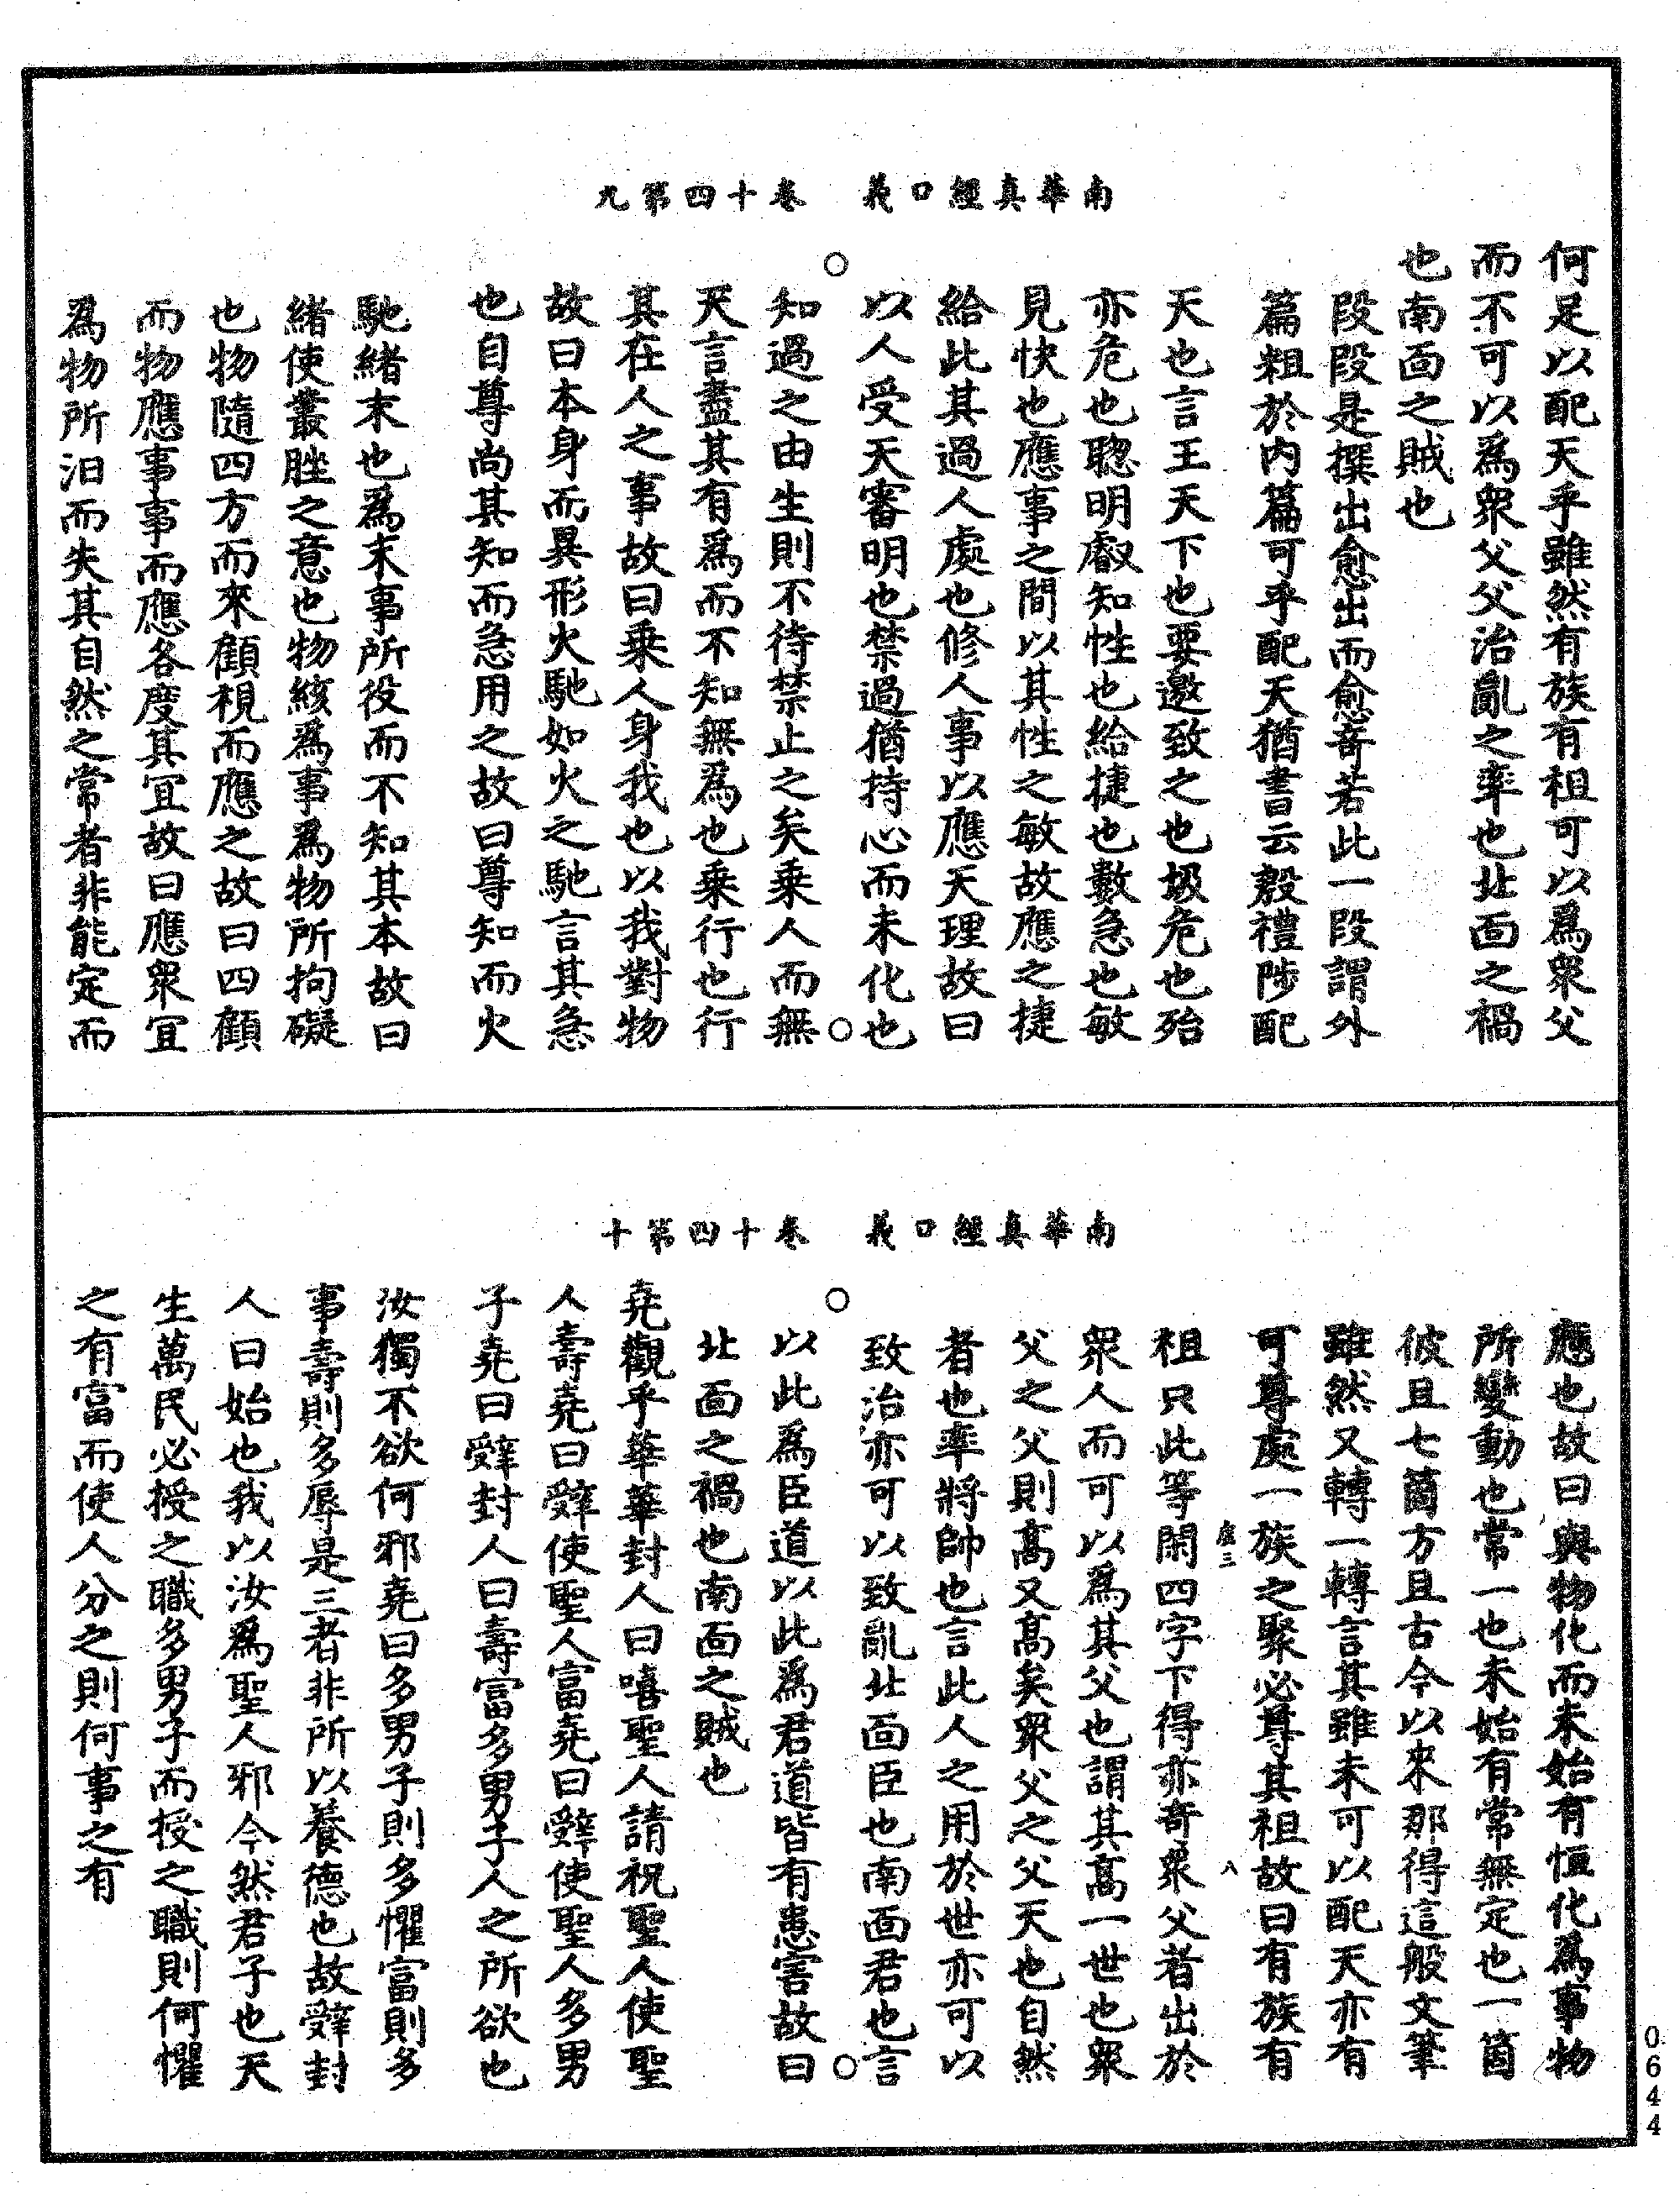 南華真經口義　卷十四第九
何足以配天乎雖然有族有祖可以爲衆父
而不可以爲衆父父治亂之率也北面之禍
也南面之賊也
段段是撰出愈出而愈奇若此一段謂外
篇粗於内篇可乎配天猶書云殷禮陟配
天也言王天下也要邀致之也圾危也殆
亦危也聰明叡知性也給捷也數急也敏
見快也應事之間以其性之敏故應之捷
給此其過人處也修人事以應天理故曰
以人受天審明也禁過猶持心而未化也
知過之由生則不待禁止之矣乗人而無
天言盡其有爲而不知無爲也乗行也行
其在人之事故曰乗人身我也以我對物
故曰本身而異形火馳如火之馳言其急
也自尊尚其知而急用之故曰尊知而火
馳緒末也爲末事所役而不知其本故曰
緒使叢脞之意也物絯爲事爲物所拘礙
也物隨四方而來顧視而應之故曰四顧
而物應事事而應各度其宜故曰應衆宜
爲物所汩而失其自然之常者非能定而
南華真經口義　卷十四第十
應也故曰與物化而未始有恒化爲事物
所變動也常一也未始有常無定也一箇
彼且七箇方且古今以來那得這般文筆
雖然又轉一轉言其雖未可以配天亦有
可尊處一族之聚必尊其祖故曰有族有
虛三　八
祖只此等閑四字下得亦奇衆父者出於
衆人而可以爲其父也謂其高一世也衆
父之父則高又高矣衆父之父天也自然
者也率將帥也言此人之用於世亦可以
致治亦可以致亂北面臣也南面君也言
以此爲臣道以此爲君道皆有患害故曰
北面之禍也南面之賊也
堯觀乎華華封人曰嘻聖人請祝聖人使聖
人壽堯曰辭使聖人富堯曰辭使聖人多男
子堯曰辭封人曰壽富多男子人之所欲也
汝獨不欲何邪堯曰多男子則多懼富則多
事壽則多辱是三者非所以養德也故辭封
人曰始也我以汝爲聖人邪今然君子也天
生萬民必授之職多男子而授之職則何懼
之有富而使人分之則何事之有
0644